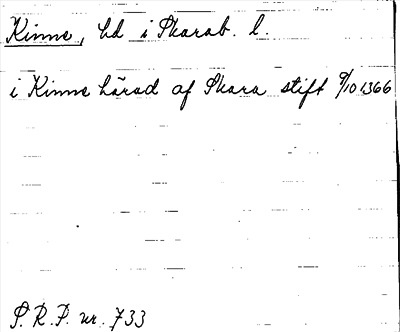 Kinne, hd i Skarab. l.
i Kinne härad af Skara stift 9/10 1366
P. R. P. nr. 733